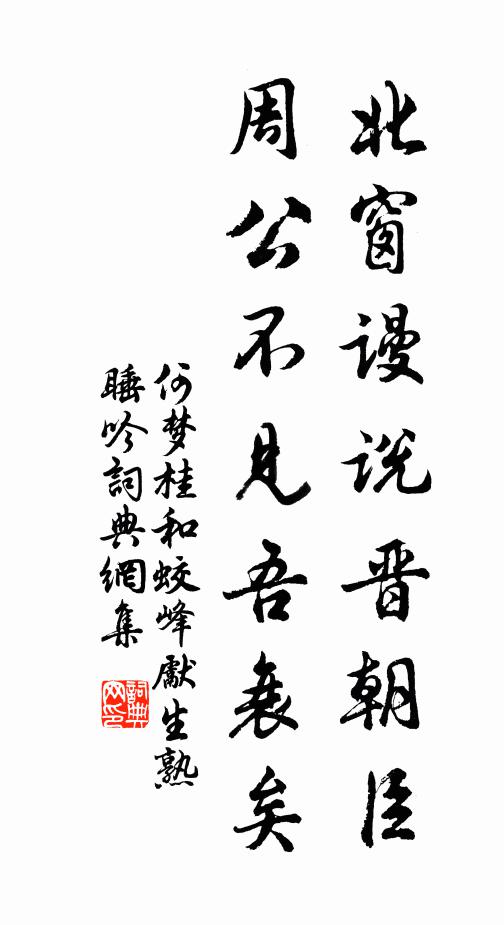 北窗谩说晋朝臣
周公不见吾衰矣
何梦桂和蛟峰獻生熟
睡吟詞典網集
詞典网印